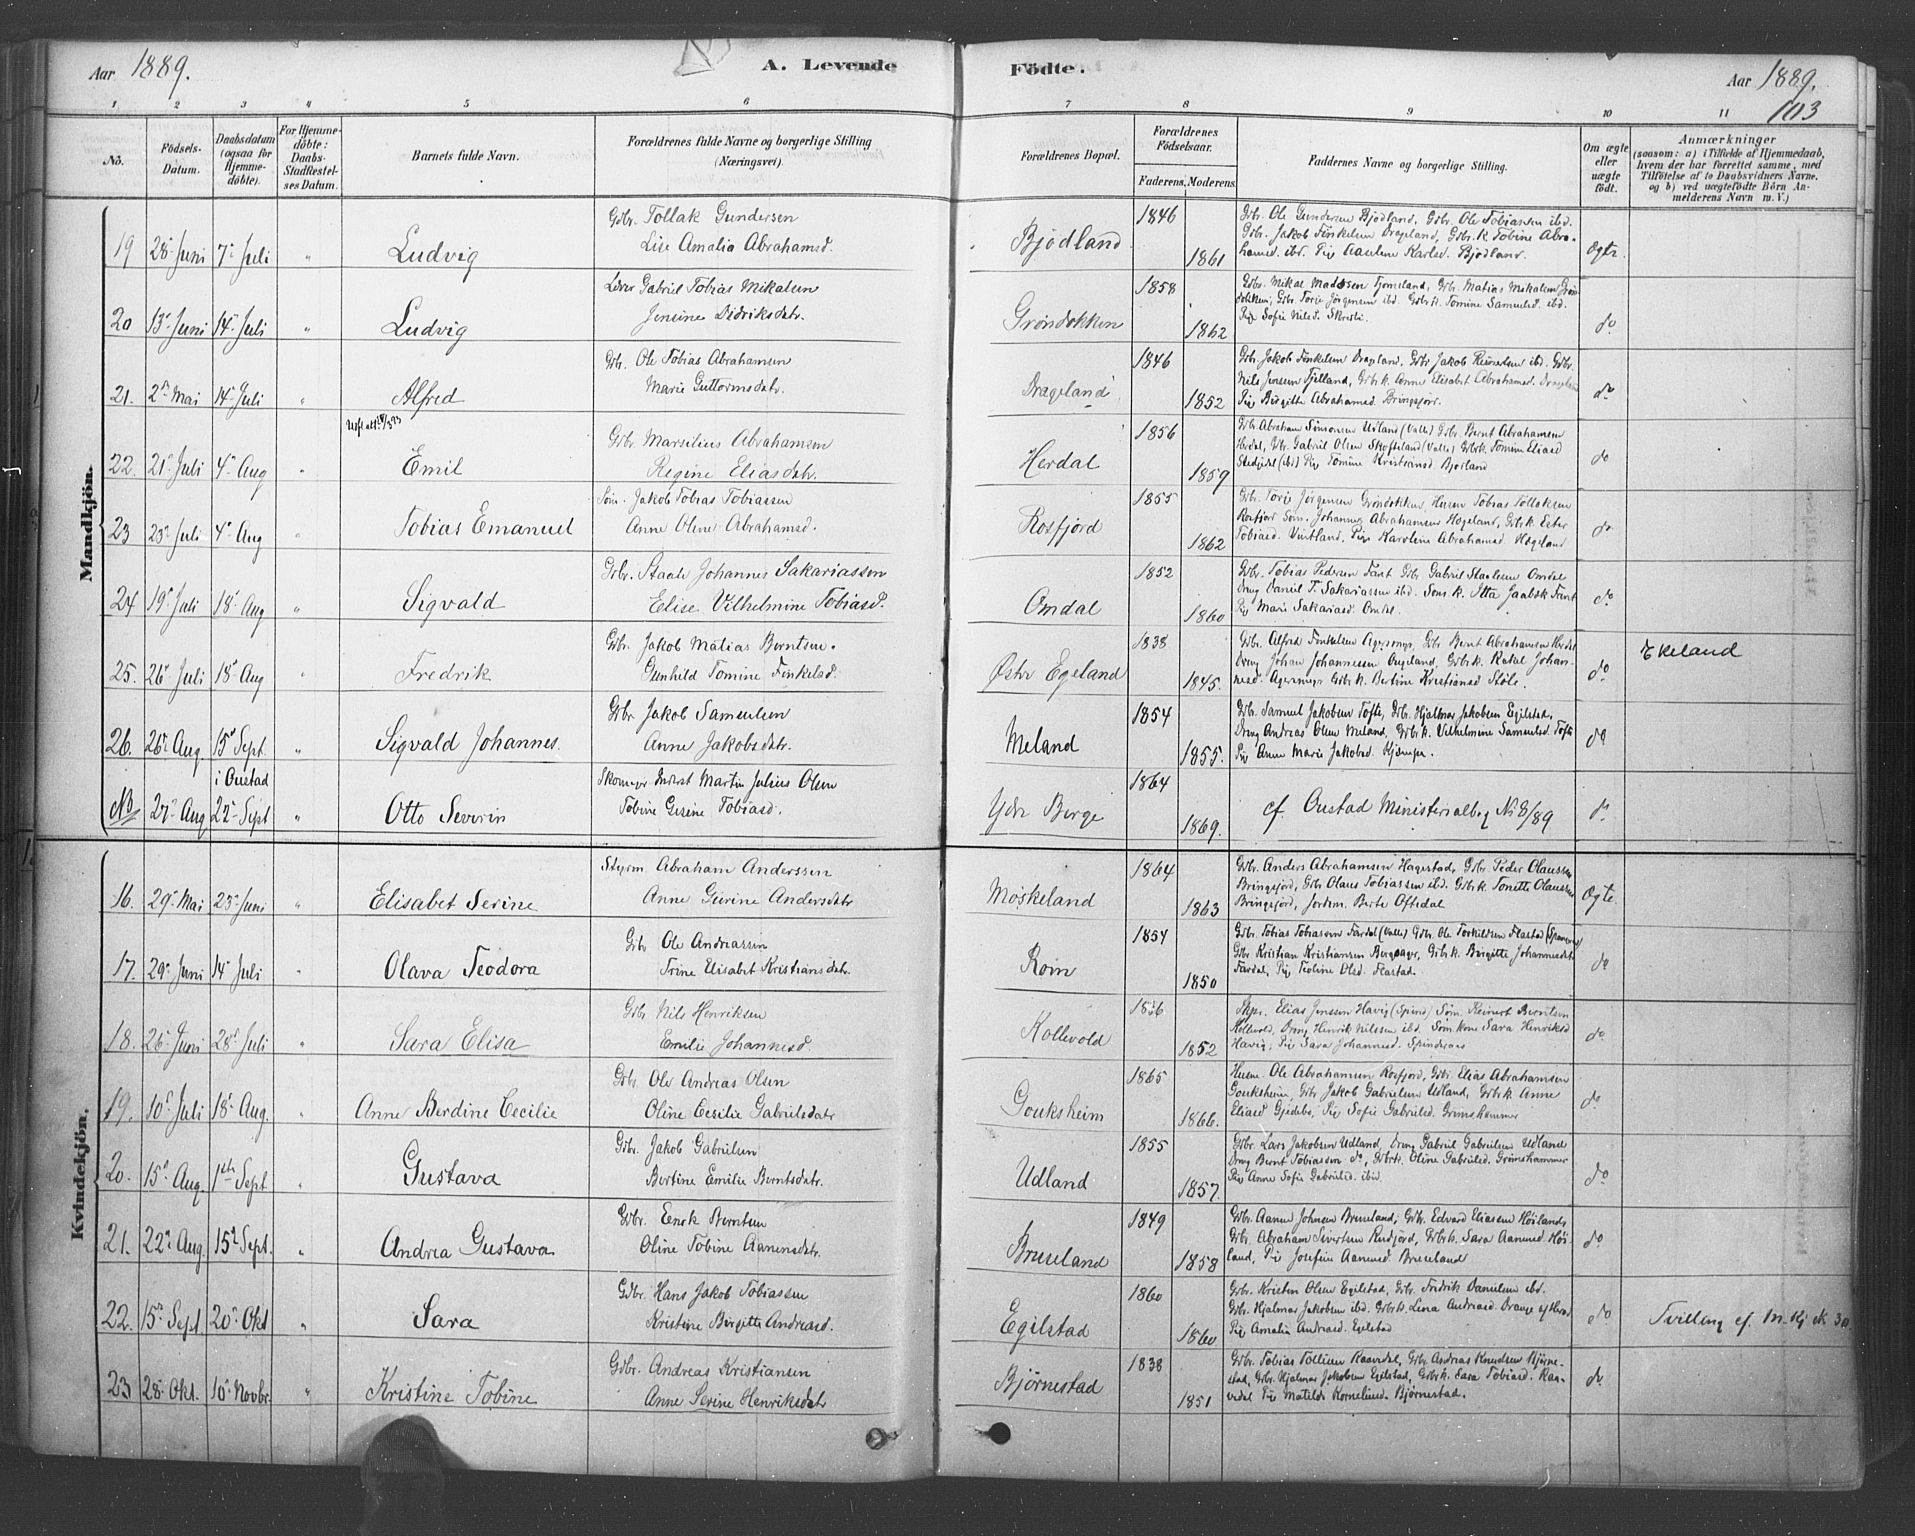 Aar 1889.
A. Levende Födte.
Aar 1889.
103
1 2 3 4 5 6 7 8 9 10 11
No.
Födsels-Datum.
Daabsdatum (ogsaa for Hjemme-döbte).
For Hjemme-döbte: Daabs-Stadfæstel-ses Datum.
Barnets fulde Navn.
Forældrenes fulde Navne og borgerlige Stilling (Næringsvei).
Forældrenes Bopæl.
Forældrenes Födselsaar.
Faderens. Moderens.
Faddernes Navne og borgerlige Stilling.
Om ægte eller uægte födt.
Anmærkninger
(saasom: a) i Tilfælde af Hjemmedaab, hvem der har forrettet samme, med Tilföielse af to Daabsvidners Navne. og b) ved uægtefödte Börn Anmelderens Navn m. V.)
Mandkjön.
19 28 Juni 7 Juli " Ludvig
Gdbr. Tollak Gundersen
Lise Amalia Abrahamsd.
Bjödland 1846 1861
Gdbr. Ole Gundersen Bjödland, Gdbr. Ole Tobiassen ibd.
Gdbr. Jakob Finkelsen Drageland, Gdbr.k. Tobine Abra-
hamsd. ibd. Pig. Aaselene Karlsd. Bjödland.
Ægte.
20 13 Juni 14 Juli " Ludvig
Gabriel Tobias Mikalsen
Jensine Didriksdatr.
Gröndokken 1858 1862
Gdbr. Mikal Madssen Tjomsland, Gdbr. Matias Mikalsen Grön-
dokken, Gdbr. Torje Jörgensen ibd. Gdbr.k. Tomine Samuelsd. ibd.
Pig. Sofie Nilsd.
do
21. 2 Mai 14 Juli " Alfred
Gdbr. Ole Tobias Abrahamsen
Marie Guttormsdatr.
Drageland 1846 1852
Gdbr. Jakob Finkelsen Drageland, Gdbr. Jakob Reinertsen ibd. Gdbr.
Nils Jensen Fjelland, Gdbr.k. Anne Elisabet Abrahamsd. Drageland
Pig. Birgitte Abrahamsd. Bringsjör.
do
22. 21 Juli 4 Aug " Emil
Gdbr. Marselius Abrahamsen
Regine Eliasdatr.
Herdal 1856 1859
Gdbr. Abraham Simonsen Udland (Valle) Gdbr. Bernt Abrahamsen
Herdal, Gdbr. Gabriel Olsen Skofteland (Valle) Gdbr.k. Tomine Eliasd
(ibd) Pig. Tomine Kristiansd. Bjorland
do
23 23 Juli 4 Aug " Tobias Emanuel
Söm. Jakob Tobias Tobiassen
Anne Oline Abrahamsd.
Rosfjord 1855 1862
Gdbr. Torje Jörgensen Gröndokken, Husm Tobias Tollaksen
Rosfjord Söm. Johannes Abrahamsen Hægeland, Gdbr.k. Ester
Tobiasd. Vintland, Pig. Karoline Abrahamsd. Hægeland
do
24 19 Juli 18 Aug " Sigvald
Gdbr. Staale Johannes Sakariassen
Elise Vilhelmine Tobiasd.
Omdal 1852 1860
Gdbr. Tobias Pedersen Fant Gdbr Gabriel Staalesen Omdal
Dreng Daniel T. Sakariassen ibd. Söm.k. Jaabek Fant
Pig Marie Sakariasd. Omdal.
do
25. 26 Juli 18 Aug " Fredrik
Gdbr. Jakob Matias Berntsen.
Gunhild Tomine Finkelsd.
Öster Egeland 1838 1845.
Gdbr. Alfred Finkelsen Agersmyr, Gdbr Bernt Abrahamsen Herdal
Dreng Johan Johannessen Ougland, Gdbr.k. Rakel Johan-
nesd. Agersmyr Gdbr.k. Bertine Kristiansd Stöle.
do
Ekeland
26. 26 Aug 15 Sept. " Sigvald Johannes.
Gdbr Jakob Samuelsen
Anne Jakobsdatr.
Meland 1854 1855.
Gdbr. Samuel Jakobsen Tofte, Gdbr. Hjalmar Jakobsen Egilstad,
Dreng Andreas Olsen Meland, Gdbr.k. Vilhelmine Samuelsd Tofte
Pig Anne Marie Jakobsd.
do
NB 27 Aug i Oustad 22 Sept " Otto Severin
Skomager Inderst Martin Julius Olsen
Tobine Gesine Tobiasd.
Ydr Berge 1864 1869.
cf. Oustad Ministerialbog No 8/89
do
Kvindekjön.
16. 29 Mai 23 Juni " Elisabet Serine
Styrm Abraham Anderssen
Anne Gurine Andersdatr
Moskeland 1864 1863
Gdbr. Anders Abrahamsen Hagestad, Gdbr Peder Olaussen
Bringsjord, Gdbr Olaus Tobiassen ibd. Gdbr.k Tonette Olausen
Bringsjord, Jordm. Berte Oftedal
Ægte
17. 29 Juni 14 Juli " Olava Teodora
Gdbr Ole Andreassen
Trine Elisabet Kristiansdatr.
Rom 1854 1850
Gdbr. Tobias Tobiassen Fardal (Valle) Gdbr. Ole Torkildsen Flastad
Gdbr Kristian Kristiansen Bergsager, Gdbr.k. Birgitte Johannesdat
Fardal, Pig Teoline Olsd. Flastad.
do
18. 26 Juni 28 Juli " Sara Elisa
Gdbr Nils Henriksen
Emilie Johannesd.
Kollevold 1856 1852
Elias Jenssen Havig (Spind) Söm. Reinert Berntsen
Kollevold, Dreng Henrik Nilssen ibd. Söm kone Sara Henriksd
Havig, Pig Sara Johannesd.
do
19. 10 Juli 18 Aug. " Anne Berdine Cecilie
Gdbr. Ole Andreas Olsen
Oline Cecilie Gabrielsdatr
Gouksheim 1865 1866.
Husm Ole Abrahamsen Rosfjord, Gdbr. Elias Abrahamsen
Gouksheim, Gdbr Jakob Gabrielsen Udland, Gdbr.k Anne
Eliasd Gjedebo, Pig Sofie Gabrielsd. Grimshammer
do
20. 15 Aug. 1ste Sept " Gustava
Gdbr. Jakob Gabrielsen
Bertine Emilie Berntsdatr.
Udland 1855 1857.
Gdbr. Lars Jakobsen Udland, Dreng Gabriel Gabrielsen Udland
Dreng Bernt Tobiassen do, Gdbr.k. Oline Gabrielsd. Grimshammer
Pig Anne Sofie Gabrielsd. ibid.
do
21. 22 Aug. 15 Sept. " Andrea Gustava
Gdbr. Enok Berntsen
Oline Tobine Aanensdatr.
Bruseland 1849 1858
Gdbr. Aanen Johnsen Bruseland, Gdbr. Edvard Eliassen Höiland,
Gdbr. Abraham Sivertsen Rudjord, Gdbr.k. Sara Aanensd Höi-
land, Pig Josefine Aanensd Bruseland
do
22. 15 Sept. 20 Okt " Sara
Gdbr. Hans Jakob Tobiassen
Kristine Birgitte Andreasd.
Egilstad 1860 1860
Gdbr. Kristen Olsen Egilstad, Gdbr. Fredrik Danielsen ibd.
Gdbr. Hjalmar Jakobsen ibd. Gdbr.k. Lena Andreasd.
Pig Amalia Andreasd. Egilstad
do
Tvilling cf. M.kj. No 30
23 28 Okt. 10 Novbr. " Kristine Tobine
Gdbr. Andreas Kristiansen
Anne Serine Henriksdatr
Bjørnestad 1838 1851
Gdbr. Tobias Tolliesen Raavedal, Gdbr. Andreas Knudsen Bjørne-
stad, Gdbr. Hjalmar Jakobsen Egilstad, Gdbr.k. Sara Tobiasd. Raa-
vedal Pig Matilde Korneliusd. Bjørnestad.
do